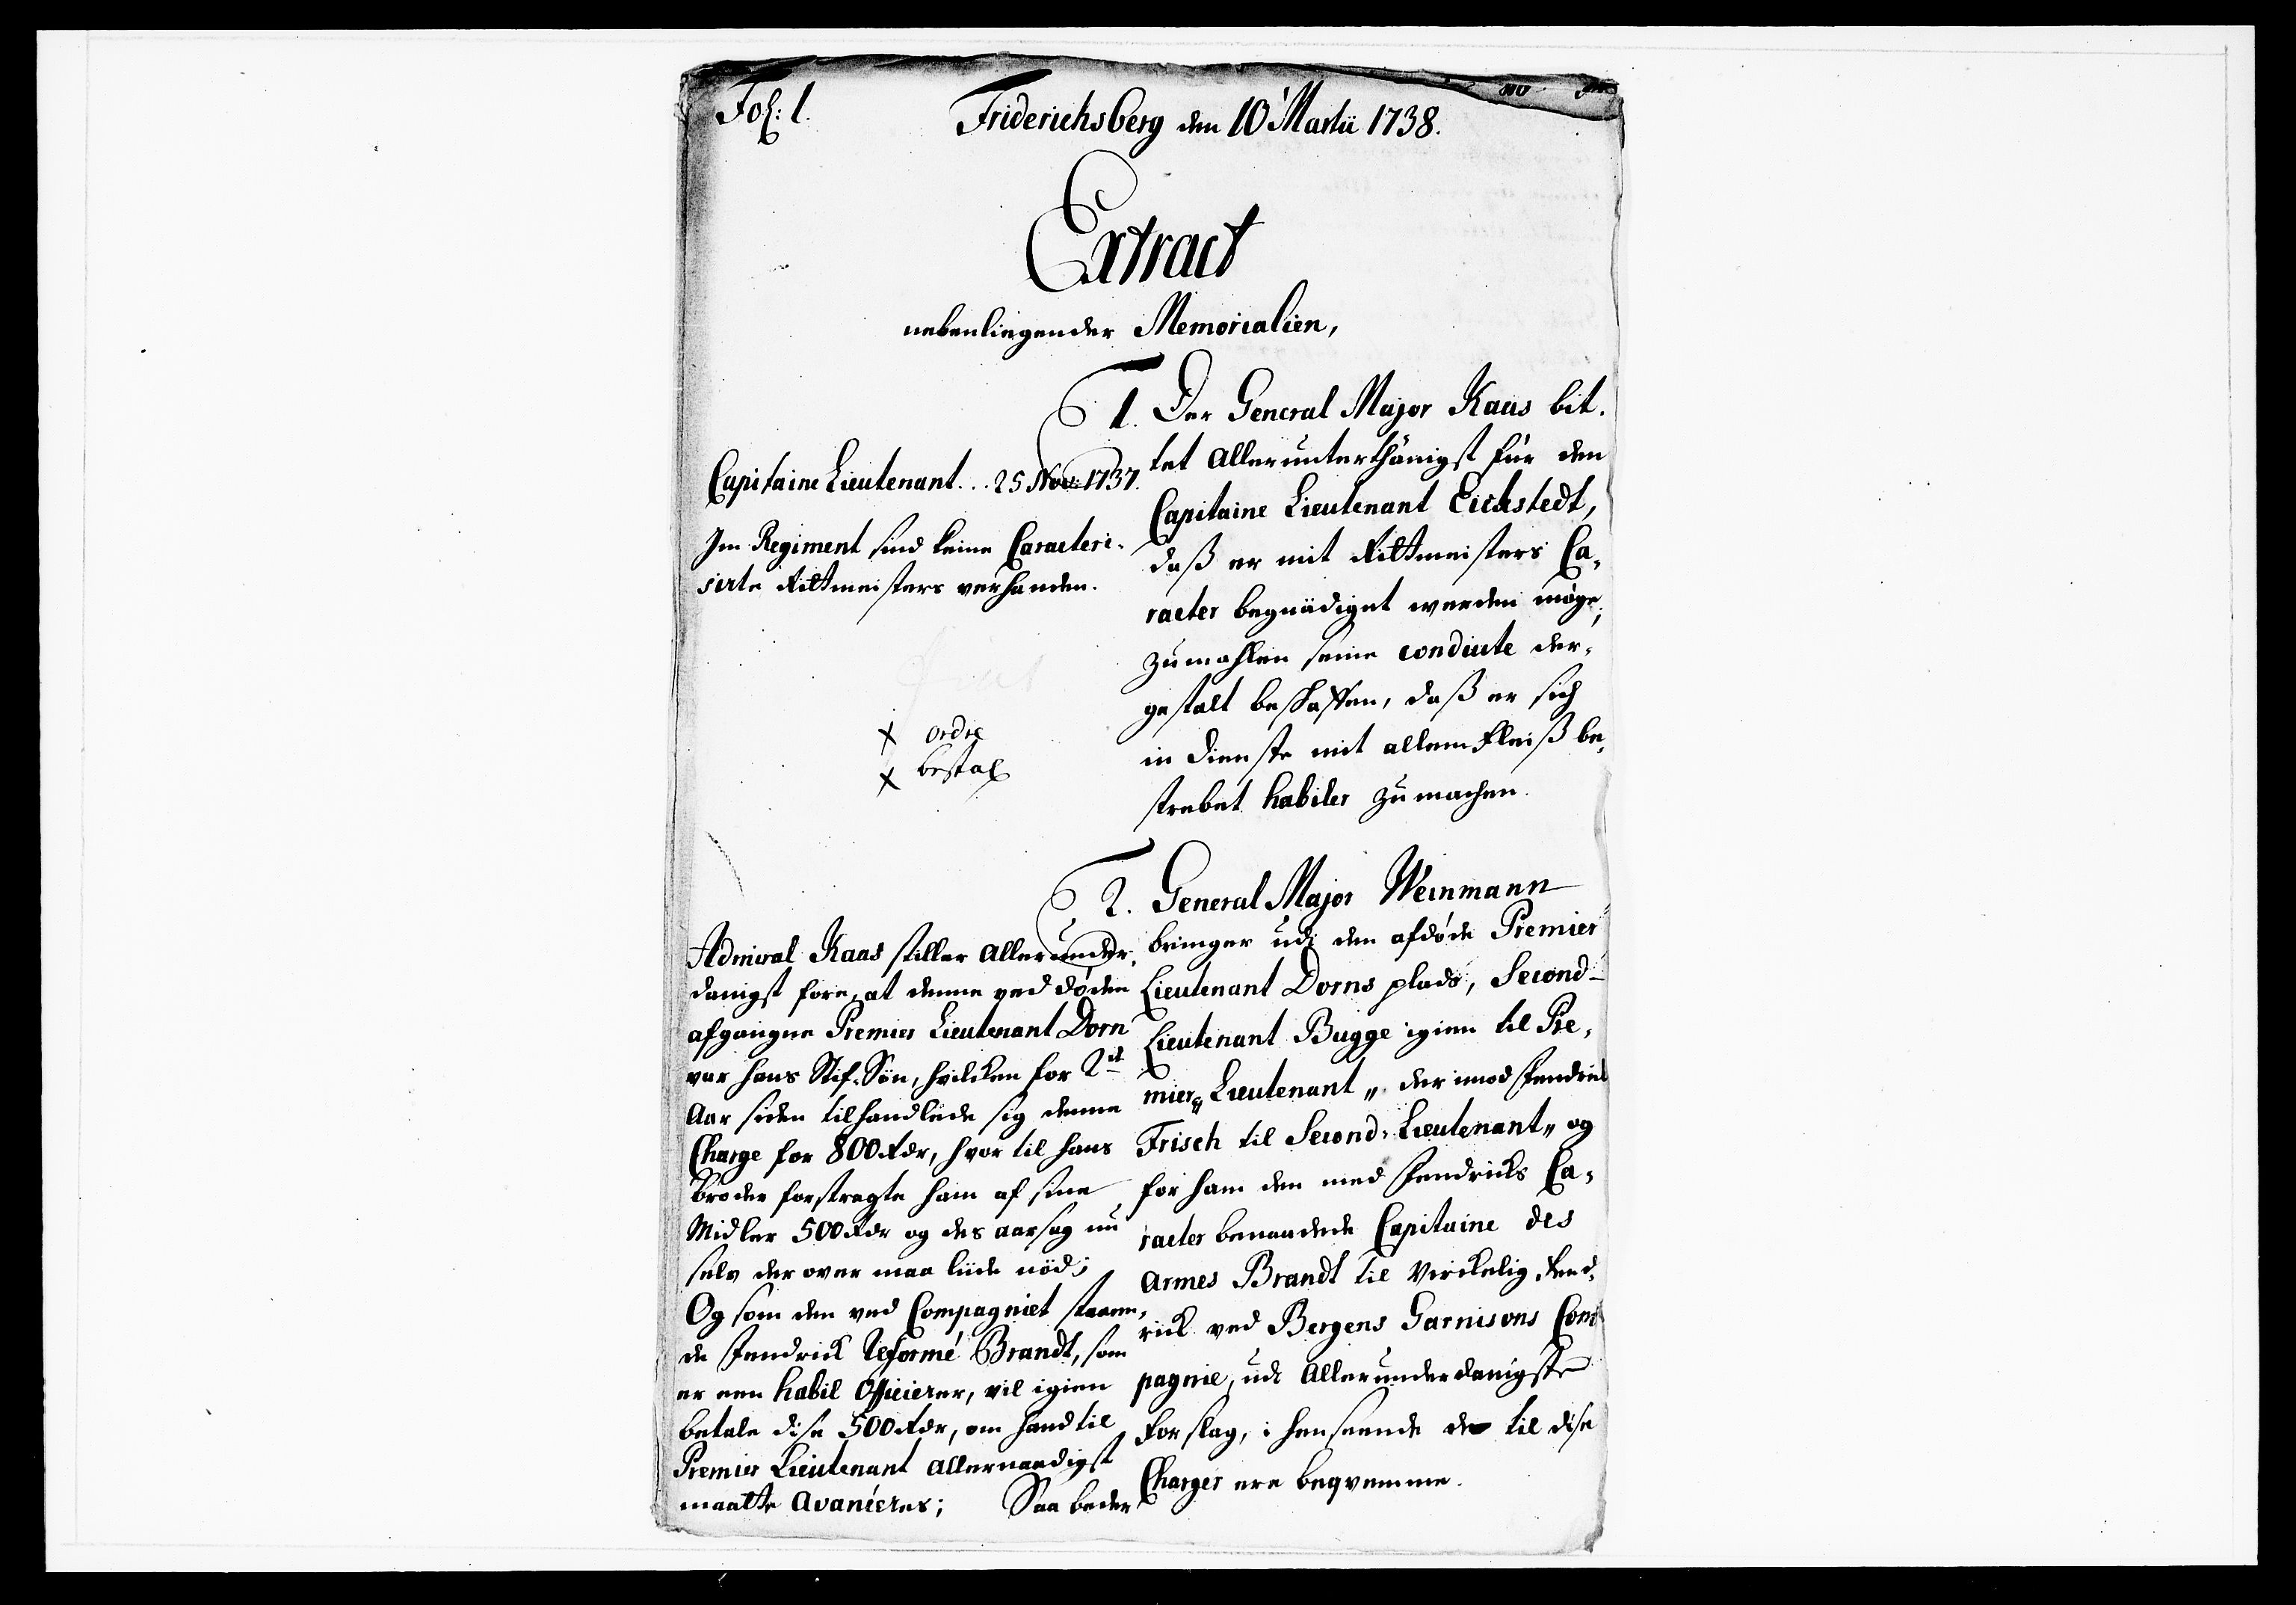 Fol: 1.
Friderichsberg den 10 Martii 1738.
Extract
nebenliegender Memorialien,
1. Der General Major Kaas bit-
tet Allerunterthänigst für den
Capitaine Lieutenant Eichstedt,
daß er mit Rittmeisters Ca-
racter begnädiget werden möge,
zumahlen seine conduite der-
gestalt beschaffen, daß er sich
in Dienste mit allem Fleiß be-
strebet habiler zu machen.
Capitaine Lieutenant... 25 Nov: 1737.
Im Regiment sind keine Caracteri-
sirte Rittmeisters verhanden.
x ordre
x bestal
2. General Major Weinmann
bringer udi den afdøde Premier
Lieutenant Dorns plads, Second-
Lieutenant Bugge igien til Pre-
mier „ Lieutenant „ der imod Fendrick
Frisch til Second-Lieutenant „ og
for ham den med Fendricks Ca-
racter benaadede Capitaine des
Armes Brandt til Virckelig Fend-
rick ved Bergens Garnisons Com-
pagnie, udi Allerunderdanigste
forslag, i henseende de til dise
Charger ere beqvemme.
Admiral Kaas stiller Allerunder-
danigst fore, at denne ved døden
afgangne Premier Lieutenant Dorn
var hans Stif-Søn, hvilken for 2
Aar siden tilhandlede sig denne
Charge for 800 Rdr, hvor til hans
broder forstragte ham af sine
Midler 500 Rdr og des aarsag nu
selv der over maa liide nød;
Og som den ved Compagniet staaen-
de Fendrick Reformé Brandt, som
er een habil Officierer, vil igien
betale dise 500 Rdr, om hand til
Premier Lieutenant allernaadigst
maatte Avanceres; Saa beder